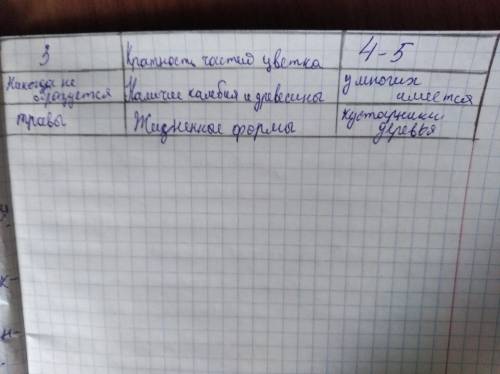 3 Кратность частей цветка 4-5
Никогда не
образуется Наличие камбия и древесины у многих
имеется
травы Жизненные формы кустарники
деревья